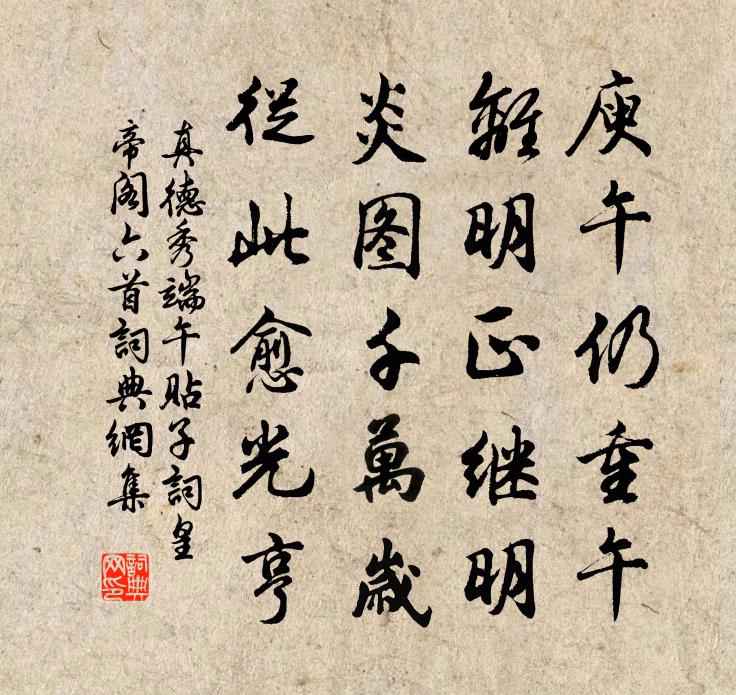 庚午仍重午
離明正继明
炎图千萬歲
從此愈光亨
真德秀端午貼子詞皇
帝阁六首詞典網集
詞典
网印